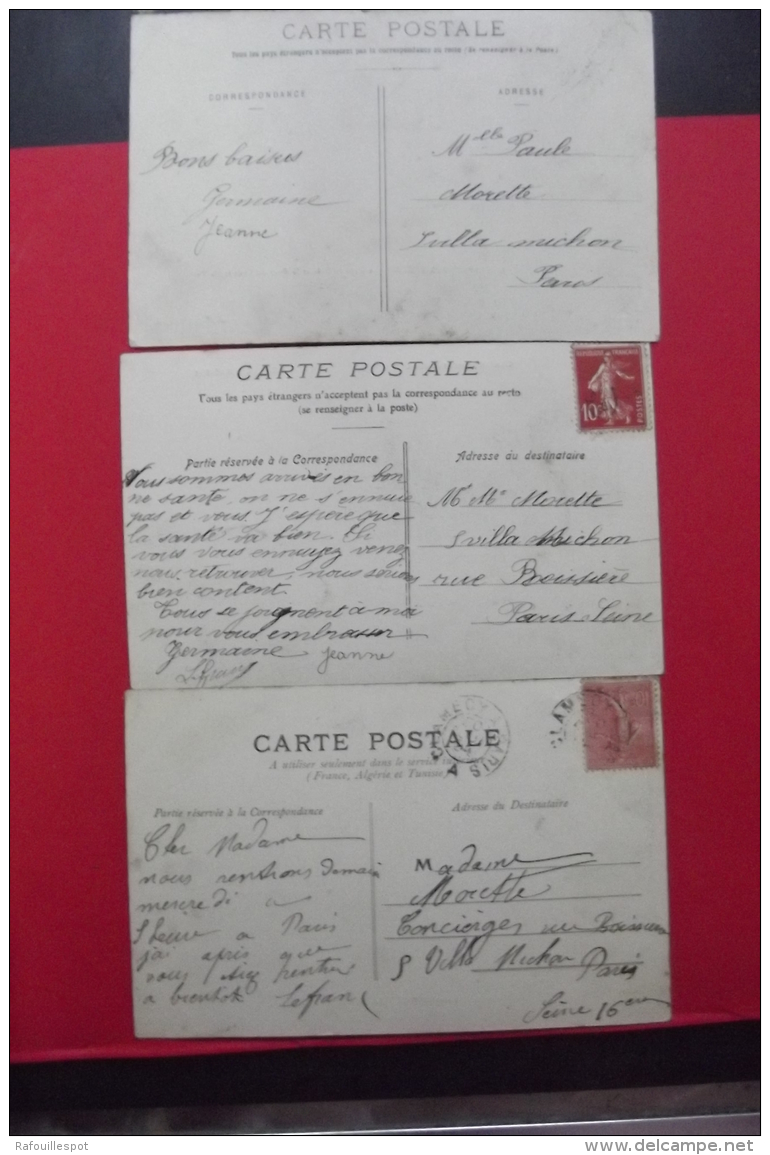 CARTE POSTALE
Tous les pays étrangers n'acceptent pas la correspondance au recto (Se renseigner à la Poste)
CORRESPONDANCE
Bons baisers
Germaine
Jeanne
ADRESSE
Mlle Paule
Morette
villa michon
Paris
CARTE POSTALE
Tous les pays étrangers n'acceptent pas la correspondance au recto
(se renseigner à la poste)
REPUBLIQUE FRANÇAISE
10c
POSTES
Partie réservée à la Correspondance
Nous sommes arrivés en bon
ne santé on ne s'ennuie
pas et vous. J'espère que
la santé va bien. Si
vous vous ennuyez venez
nous retrouver, nous serions
bien content.
Tous se joignent à moi
pour vous embrasser
Germaine Jeanne
Lefranc
Adresse du destinataire
Mr Me Morette
5 villa Michon
rue Boissière
Paris Seine
CARTE POSTALE
A utiliser seulement dans le service
(France, Algérie et Tunisie)
CLAMECY
A
Partie réservée à la Correspondance
Cher Madame
nous rentrons demain
mercredi a
heure a Paris
j'ai apris que
vous rentré
a bientôt Lefranc
Adresse du Destinataire
Madame
Morette
Concierges rue Boissiere
5 Villa Michon Paris
Seine 16em
Rafouillespot
www.delcampe.net